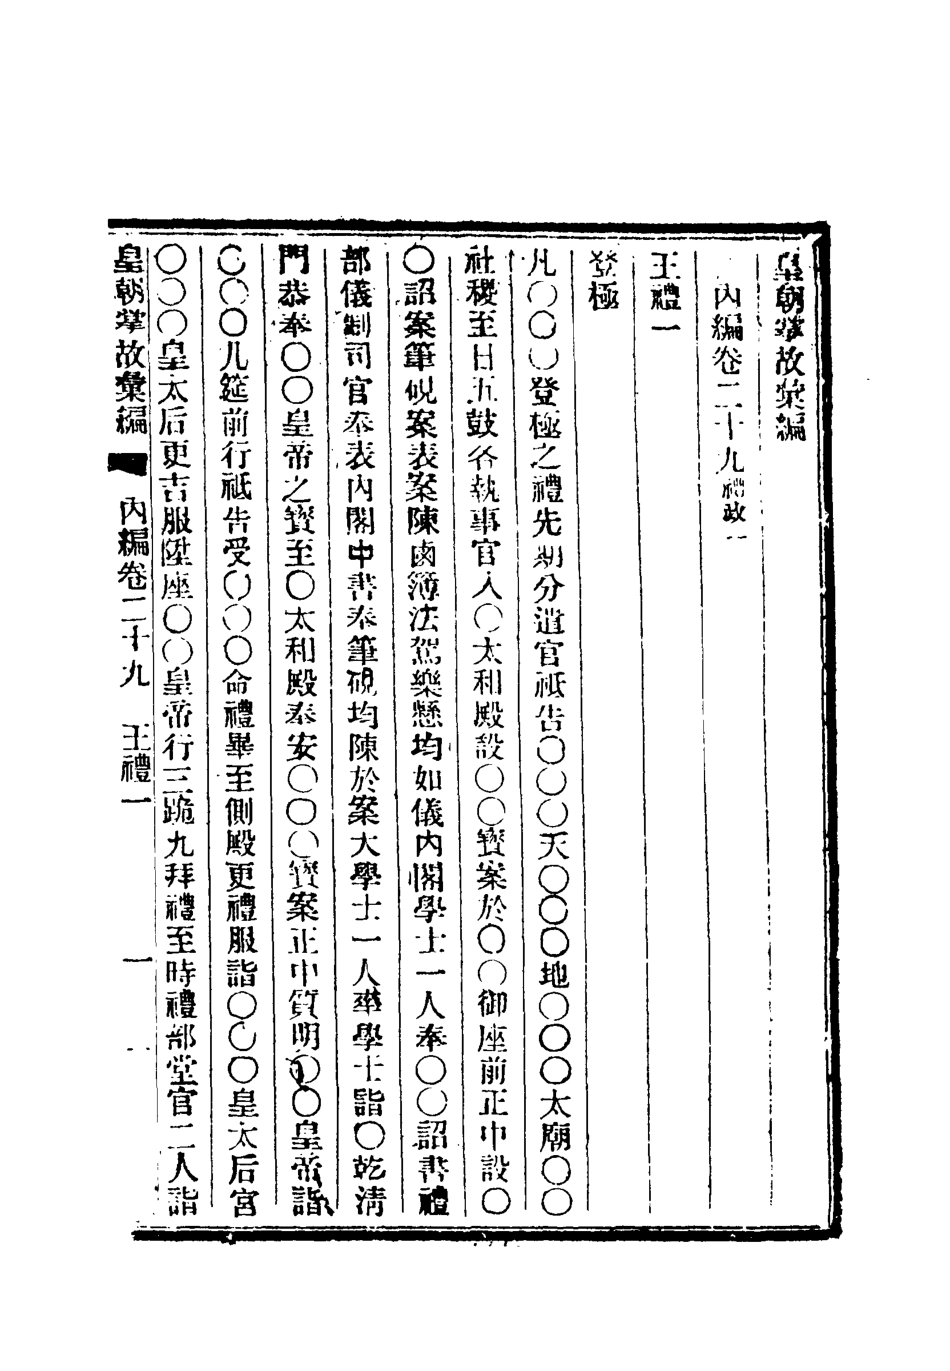 皇朝掌故彙編
內編卷二十九禮政一
王禮一
登極
凡〇〇〇登極之禮先期分遣官祗告〇〇〇天〇〇〇地〇〇〇太廟〇〇
社稷至日五鼓各執事官入〇太和殿設〇〇寶案於〇〇御座前正中設〇
〇詔案筆硯案表案陳鹵簿法駕樂懸均如儀內閣學士一人奉〇〇詔書禮
部儀制司官奉表內閣中書奉筆硯均陳於案大學士一人率學士詣〇乾淸
門恭奉〇〇皇帝之寶至〇太和殿奉安〇〇〇寶案正中質明〇〇皇帝詣
〇〇〇几筵前行祗告受〇〇〇命禮畢至側殿更禮服詣〇〇〇皇太后宮
〇〇〇皇太后更吉服陞座〇〇皇帝行三跪九拜禮至時禮部堂官二人詣
皇朝掌故彙編 內編卷二十九 王禮一 一